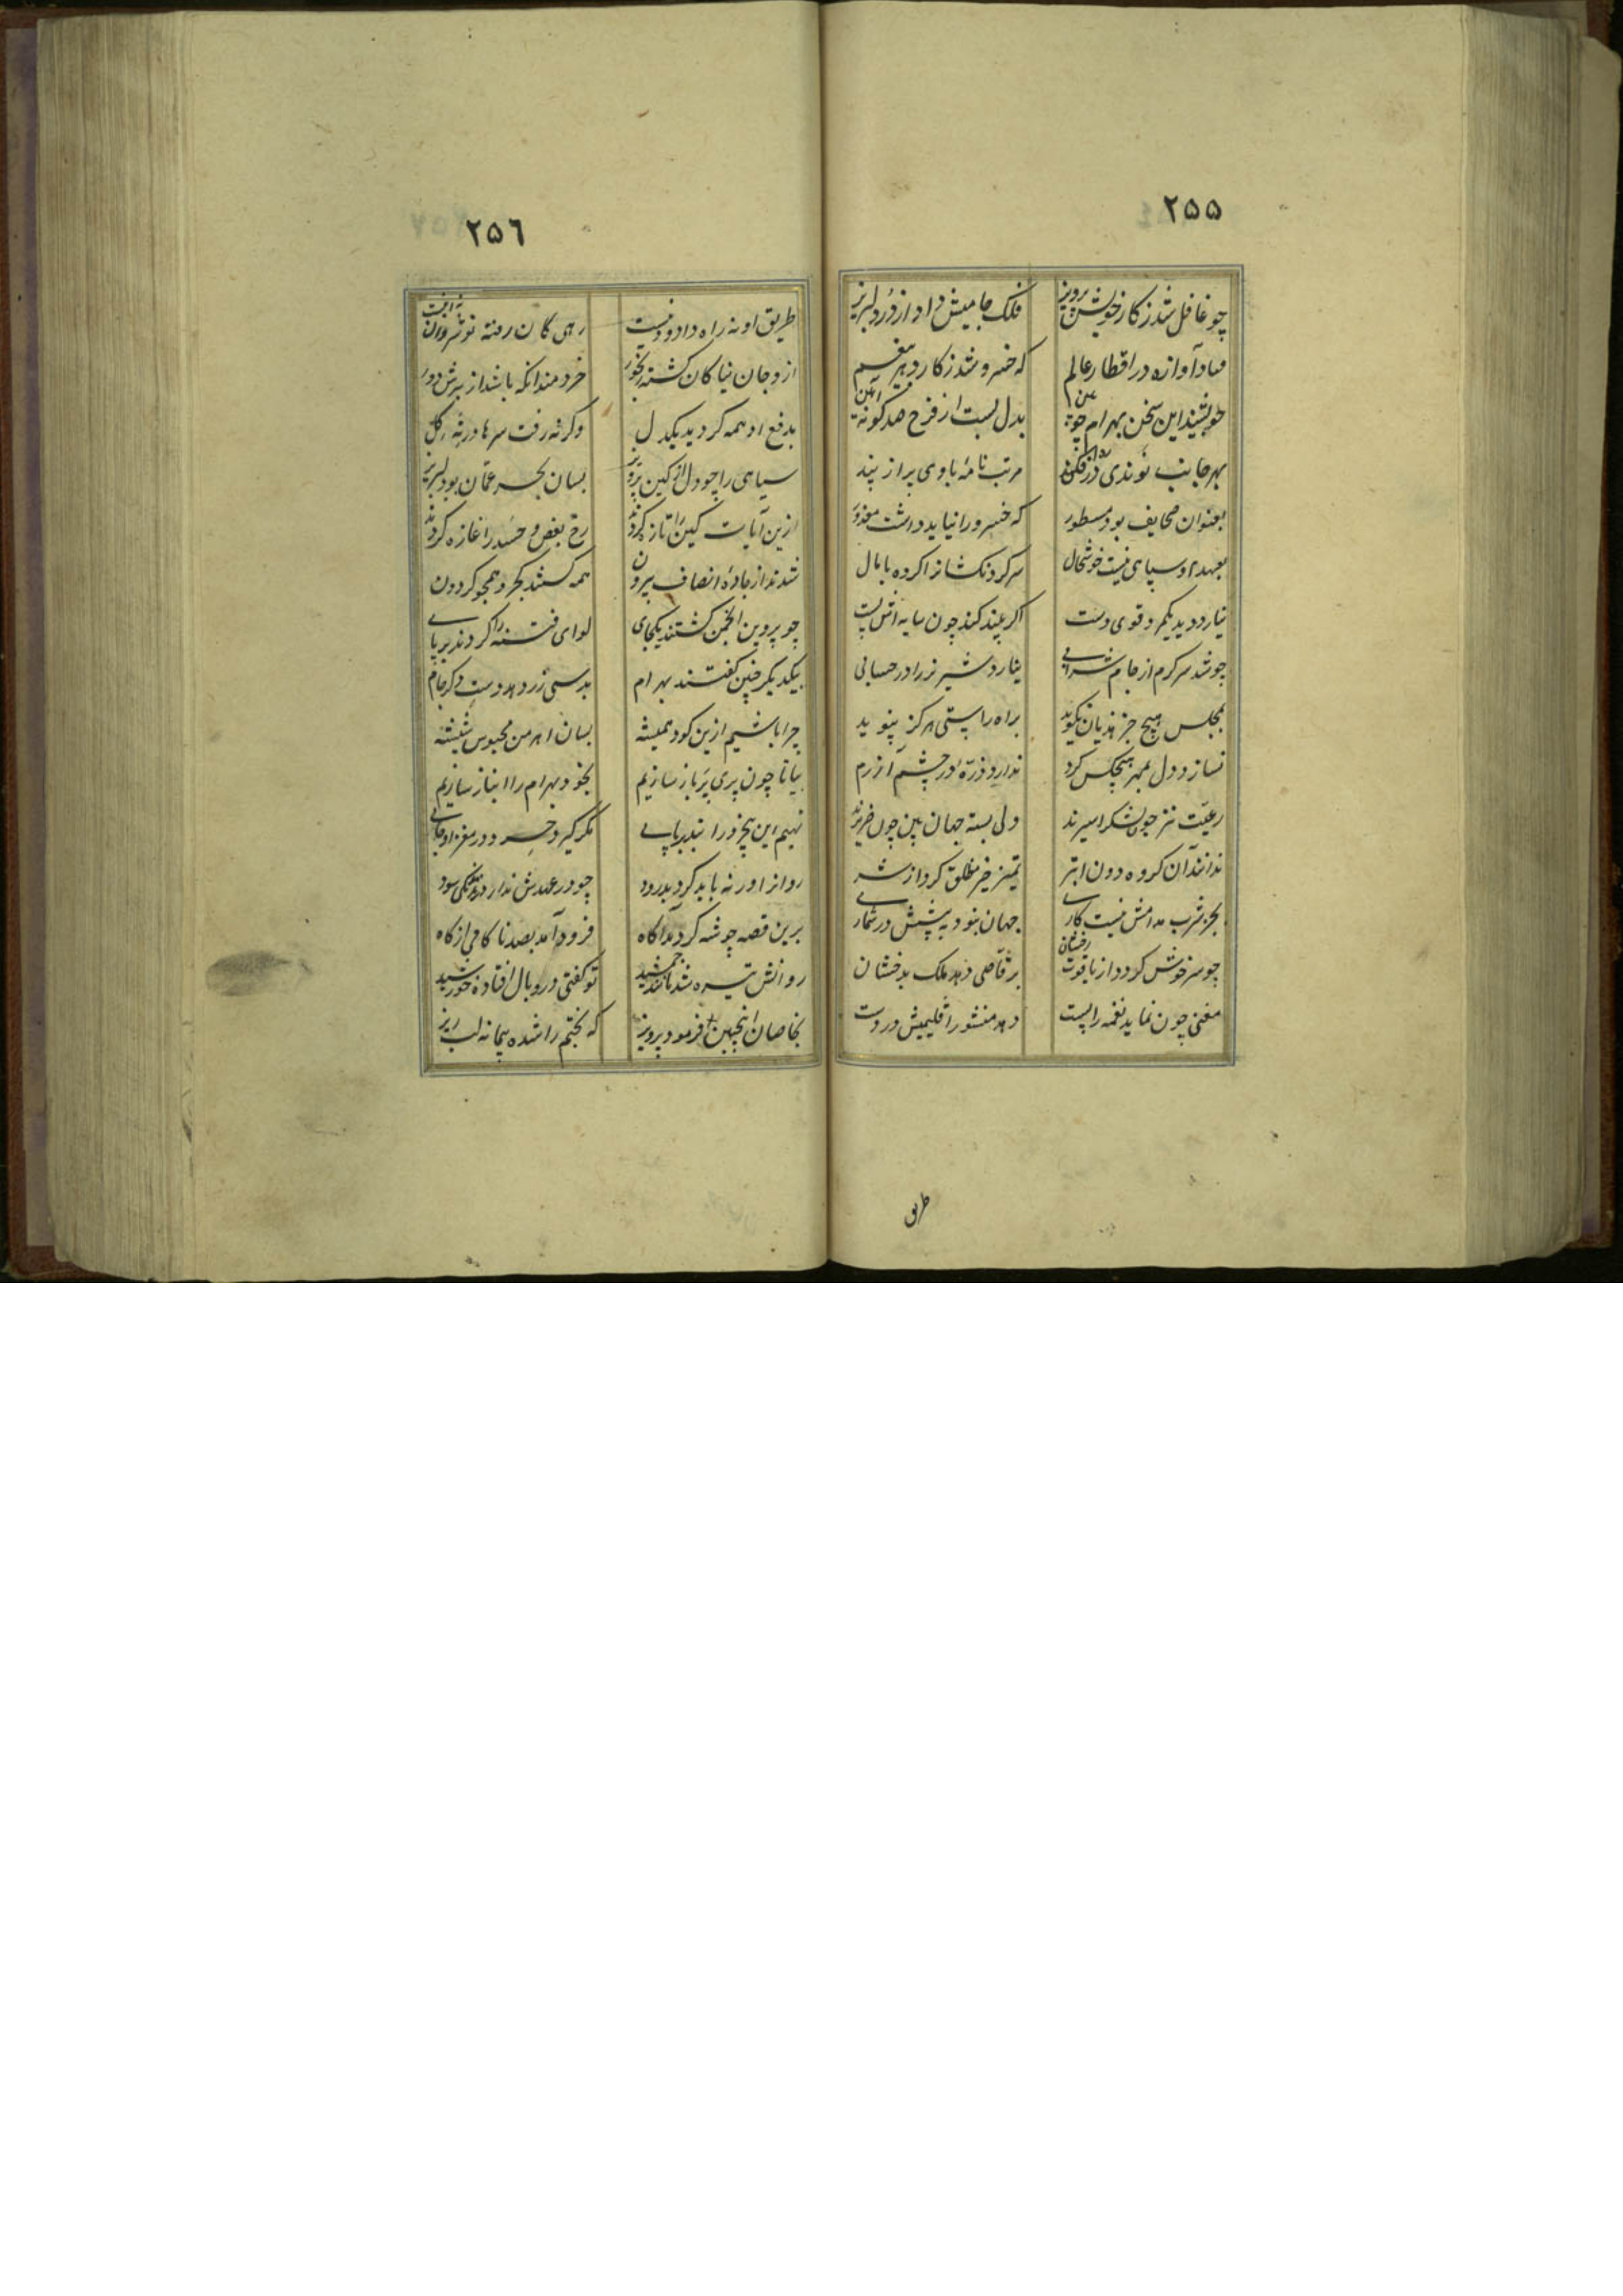 ٢٥٥
چو غافل شد ز کار خویش پرویز فلک جامیش داد از درد لبریز
فتاد آوازه در اقطار عالم که خسرو شد ز کار دهر
چو بشنید این سخن بهرام چوبین بدل بست از فرح صد گونه آئین
بهر جانب نوندی مرتب نامهٔ باوی پر از پند
بعنوان صحایف بود مسطور که خسرو را نیاید داشت معذور
بعهد او سپاهی نیست خوشحال سر گردنکشانرا کرده پامال
نیارد دید یکمرد قوی دست اگر چند کند چون سایه اش پست
چو شد سرگرم از جام شرابی نیارد شیر نر را در حسابی
بمجلس هیچ جز هذیان نگوید براه راستی هرگز نپوید
نسازد دل بمهر هیچکس گرم ندارد ذرهٔ در چشم آزرم
رعیت نیز چون لشکر اسیرند ولی بسته جهان بین چون ضریرند
ندانند آن گروه دون ابتر تمیز خیر مطلق کرد از شر
بجز شرب مدامش نیست کاری جهان نبود به پیشش در شماری
چو سرخوش گردد از یاقوت رخشان برقاصی دهد ملک بدخشان
مغنی چون نماید نغمه را پست دهد منشور اقلیمیش در دست
طریق
٢٥٦
طریق او نه راه داد و دینست رهی کان رفته نوشروان نه اینست
ازو جان نیاکان گشته رنجور خردمند آنکه باشد از برش دور
بدفع او همه گردید یکدل وگرنه رفت سرها در ته گل
سپاهی را چو دل از کین پرویز بسان بحر عمان بود لبریز
ازین آیات کین را تازه کردند رخ بغض و حسد را غازه کردند
شدند از جادهٔ انصاف بیرون همه گشتند کجرو همچو گردون
چو پروین انجمن گشتند یکجای لوای فتنه را کردند بر پای
بیکدیگر چنین گفتند بهرام بدستی زر دهد دست دگر جام
چرا باشیم ازین کودک همیشه بسان اهرمن محبوس شیشه
بیا تا چون پری پر باز سازیم بخود بهرام را انباز سازیم
نهیم این بیخرد را بند بر پای مگر گیرد خرد در مغز او جای
چو در عهدش ندارد سود روان از او نه باید کرد بدرود
برین قصه چو شه گردید آگاه فرود آمد بصد ناکامی از گاه
روانش تیره شد مانند جمشید تو گفتی در وبال افتاده خورشید
بخاصان اینچنین فرمود پرویز که بختم را شده پیمانه لب ریز